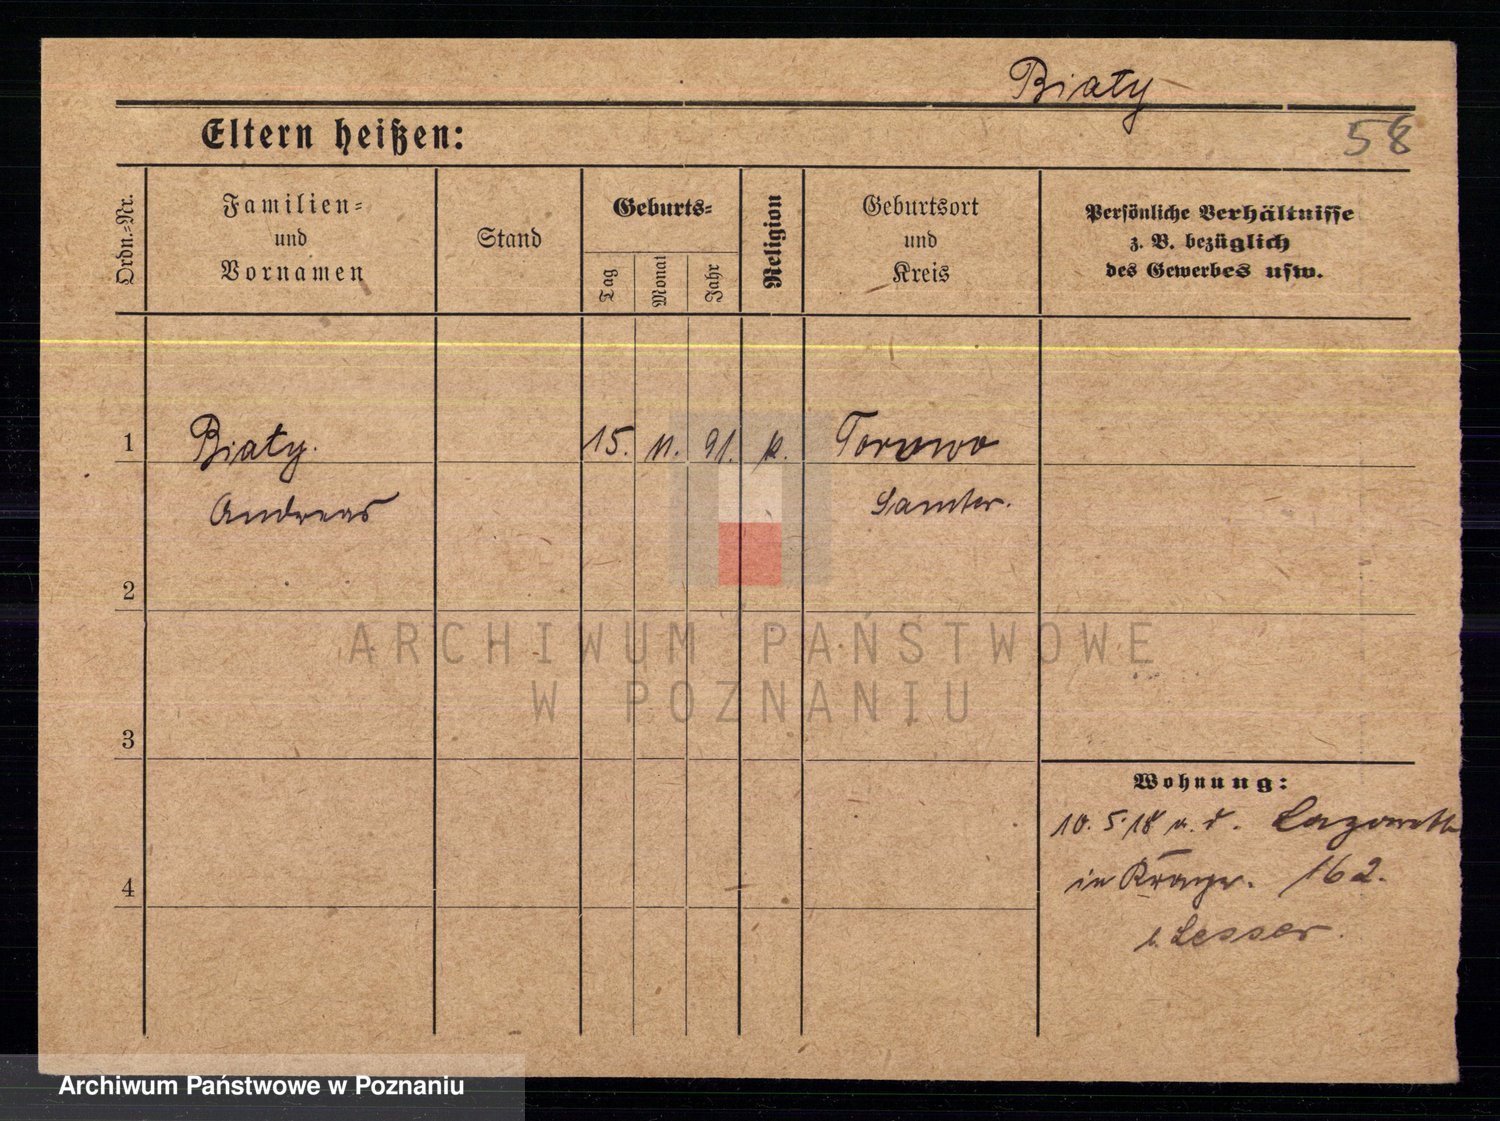 Biały
58
Eltern heißen:
Ordn.-Nr.
Familien-
und
Vornamen
Stand
Geburts-
Tag
Monat
Jahr
Religion
Geburtsort
und
Kreis
Persönliche Verhältnisse
z. B. bezüglich
des Gewerbes usw.
1
Biały.
15. 11. 91. k.
Torowo
Andreas
Samter.
2
ARCHIWUM PAŃSTWOWE
W POZNANIU
3
Wohnung:
10. 5. 18 Lazarett
in 162.
4
b. Lesser.
Archiwum Państwowe w Poznaniu